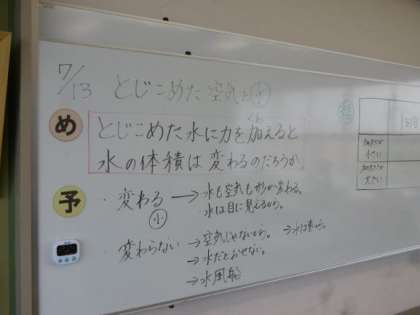 7/13 とじこめた空気と水
め
とじこめた水に力を加えると
水の体積は変わるのだろうか。
予
・変わる → 水も空気も形が変わる。
小 水は目に見えるから。
・変わらない → 空気じゃないから。
→ 水だとおせない。
→ 水風船